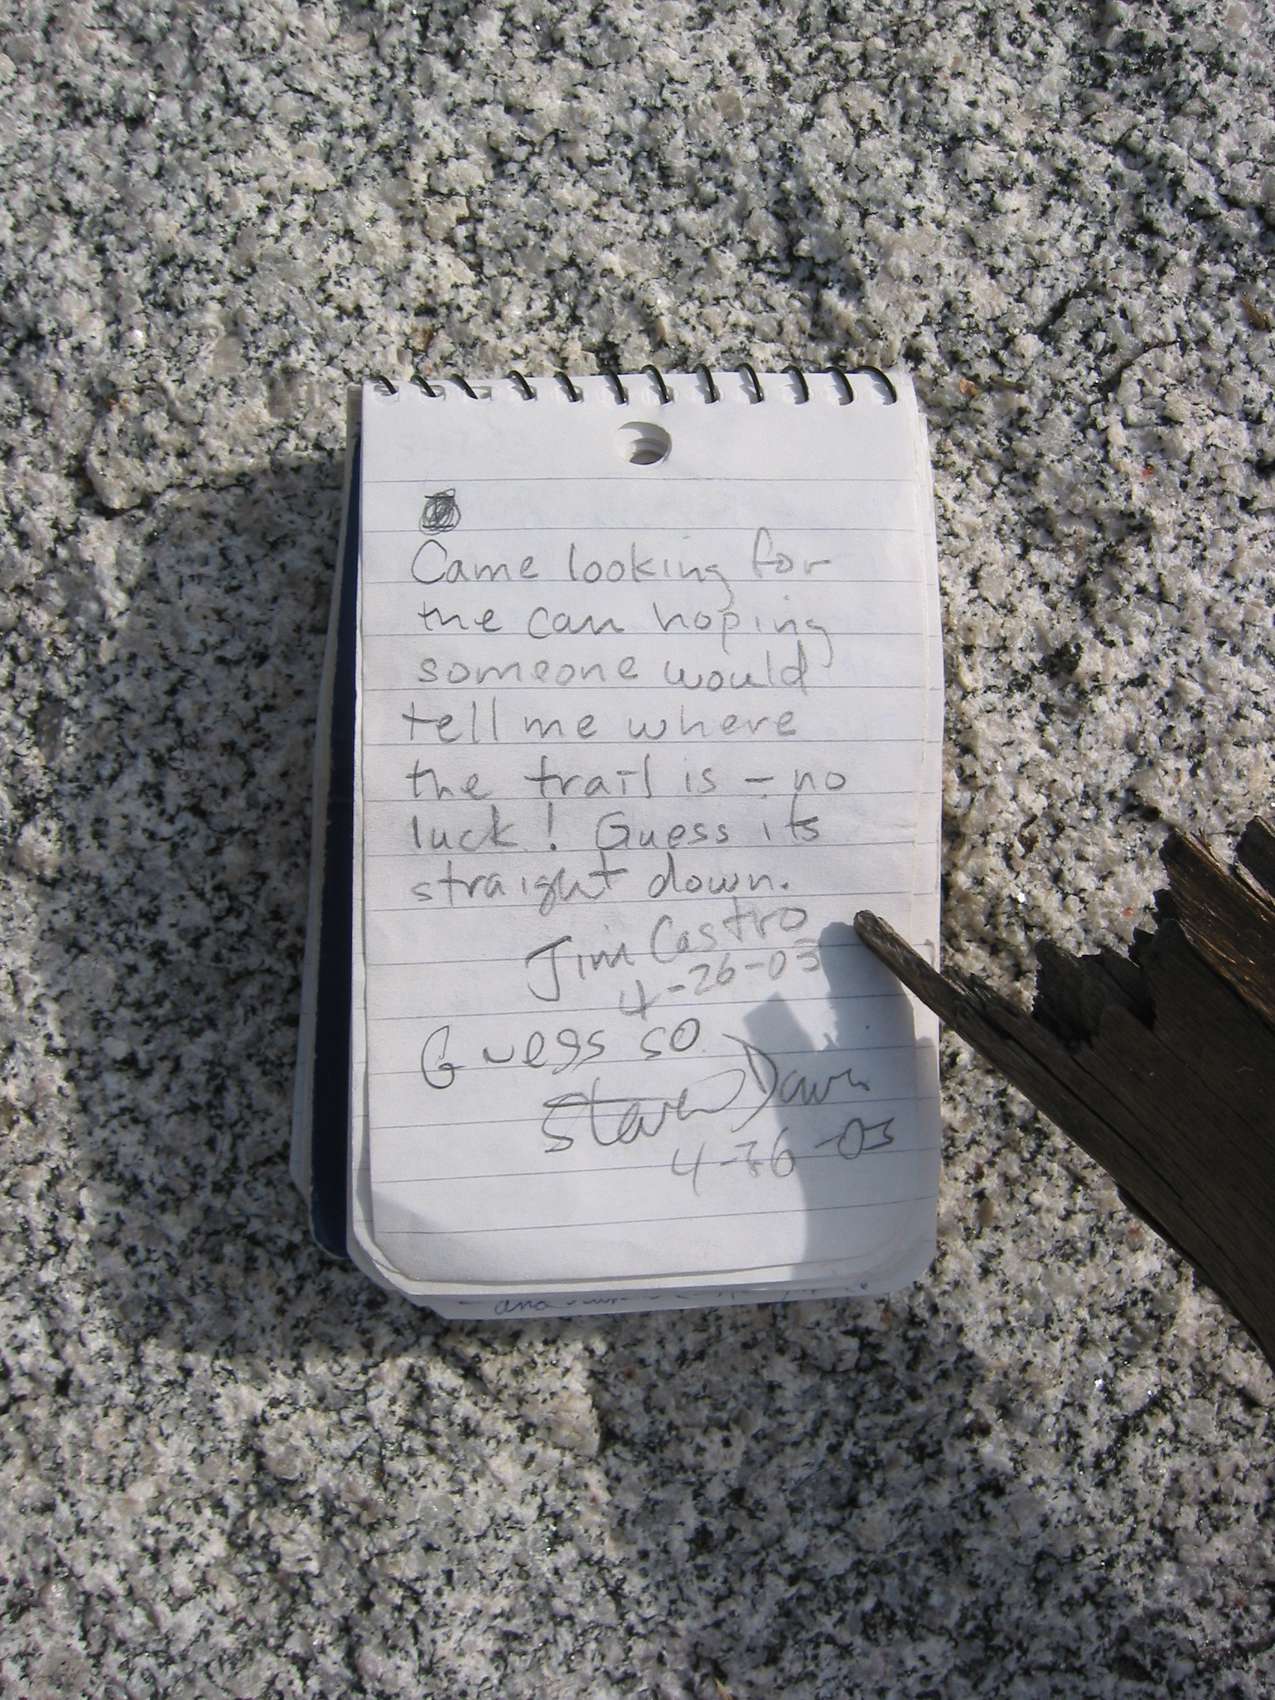 Came looking for
the can hoping
someone would
tell me where
the trail is - no
luck! Guess its
straight down.
Jim Castro
4-26-03
Guess so
4-26-03